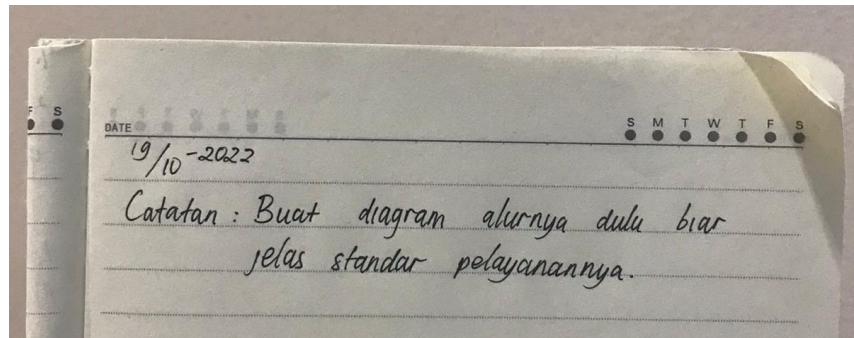 F S
DATE
S M T W T F S
19/10-2022
Catatan : Buat diagram alurnya dulu biar
jelas standar pelayanannya.